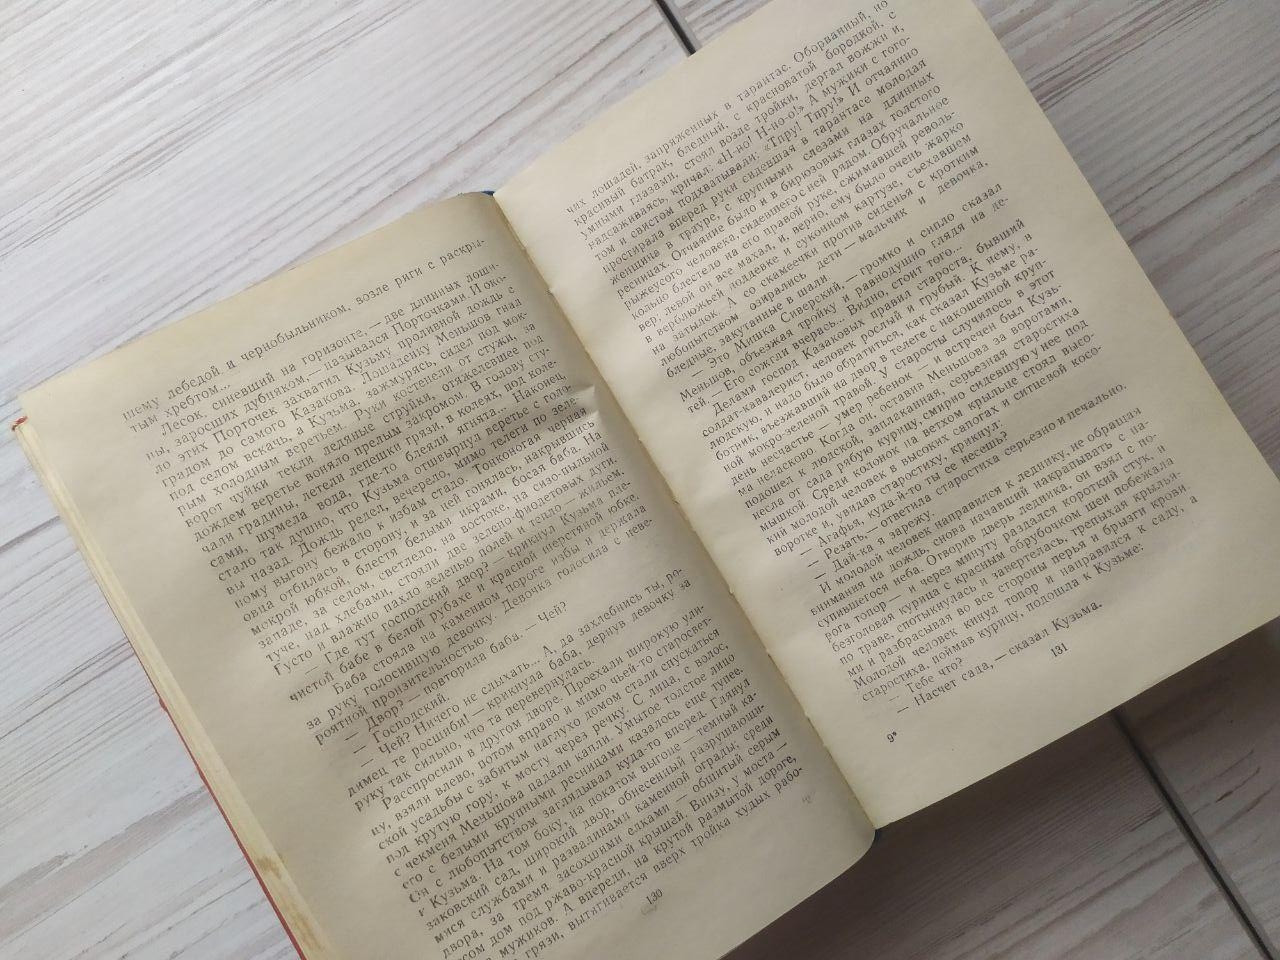 шему лебедой и чернобыльником, возле риги с раскры-
тым хребтом...
Лесок, синевший на горизонте, — две длинных лощи-
ны, заросших дубняком, — назывался Порточками. И око-
ло этих Порточек захватил Кузьму проливной дождь с
градом до самого Казакова. Лошаденку Меньшов гнал
под селом вскачь, а Кузьма, зажмурясь, сидел под мок-
рым холодным веретьем. Руки костенели от стужи, за
ворот чуйки текли ледяные струйки, отяжелевшее под
дождем веретье воняло прелым закромом. В голову сту-
чали градины, летели лепешки грязи, в колеях, под коле-
сами, шумела вода, где-то блеяли ягнята... Наконец
стало так душно, что Кузьма отшвырнул веретье с голо-
вы назад. Дождь редел, вечерело, мимо телеги по зеле-
ному выгону бежало к избам стадо. Тонконогая черная
овца отбилась в сторону, и за ней гонялась, накрывшись
мокрой юбкой, блестя белыми икрами, босая баба. На
западе, за селом, светлело, на востоке, на сизо-пыльной
туче, над хлебами, стояли две зелено-фиолетовых дуги.
Густо и влажно пахло зеленью полей и тепло — жильем.
— Где тут господский двор? — крикнул Кузьма пле-
чистой бабе в белой рубахе и красной шерстяной юбке.
Баба стояла на каменном пороге избы и держала
за руку голосившую девочку. Девочка голосила с неве-
роятной пронзительностью.
— Двор? — повторила баба. — Чей?
— Господский.
— Чей? Ничего не слыхать... А, да захлебнись ты, ро-
димец те расшиби! — крикнула баба, дернув девочку за
руку так сильно, что та перевернулась.
Расспросили в другом дворе. Проехали широкую ули-
цу, взяли влево, потом вправо и мимо чьей-то старосвет-
ской усадьбы с забитым наглухо домом стали спускаться
под крутую гору, к мосту через речку. С лица, с волос,
с чекменя Меньшова падали капли. Умытое толстое лицо
его с белыми крупными ресницами казалось еще тупее.
Он с любопытством заглядывал куда-то вперед. Глянул
и Кузьма. На том боку, на покатом выгоне — темный ка-
заковский сад, широкий двор, обнесенный разрушающи-
мися службами и развалинами каменной ограды; среди
двора, за тремя засохшими елками — обшитый серым
тесом дом под ржаво-красной крышей. Внизу, у моста —
кучка мужиков. А впереди, на крутой размытой дороге,
грязи, вытягивается вверх тройка худых рабо-
130
чих лошадей, запряженных в тарантас. Оборванный, но
красивый батрак, бледный, с красноватой бородкой, с
умными глазами, стоял возле тройки, дергал вожжи и,
надсаживаясь, кричал: «Н-но! Н-но-о!» А мужики с гого-
том и свистом подхватывали: «Тпру! Тпру!» И отчаянно
простирала вперед руки сидевшая в тарантасе молодая
женщина в трауре, с крупными слезами на длинных
ресницах. Отчаяние было и в бирюзовых глазах толстого
рыжеусого человека, сидевшего с ней рядом. Обручальное
кольцо блестело на его правой руке, сжимавшей револь-
вер, левой он все махал, и, верно, ему было очень жарко
в верблюжьей поддевке и суконном картузе, съехавшем
на затылок. А со скамеечки против сиденья с кротким
любопытством озирались дети — мальчик и девочка,
бледные, закутанные в шали.
— Это Мишка Сиверский, — громко и сипло сказал
Меньшов, объезжая тройку и равнодушно глядя на де-
тей. — Его сожгли вчерась... Видно, стоит того...
Делами господ Казаковых правил староста, бывший
солдат-кавалерист, человек рослый и грубый. К нему, в
людскую, и надо было обратиться, как сказал Кузьме ра-
ботник, въезжавший на двор в телеге с накошенной круп-
ной мокро-зеленой травой. У старосты случилось в этот
день несчастье — умер ребенок — и встречен был Кузь-
ма неласково. Когда он, оставив Меньшова за воротами,
подошел к людской, заплаканная, серьезная старостиха
несла от сада рябую курицу, смирно сидевшую у нее под
мышкой. Среди колонок на ветхом крыльце стоял высо-
кий молодой человек в высоких сапогах и ситцевой косо-
воротке и, увидав старостиху, крикнул:
— Агафья, куда й-то ты ее несешь?
— Резать, — ответила старостиха серьезно и печально.
— Дай-ка я зарежу.
И молодой человек направился к леднику, не обращая
внимания на дождь, снова начавший накрапывать с на-
супившегося неба. Отворив дверь ледника, он взял с по-
рога топор — и через минуту раздался короткий стук, и
безголовая курица с красным обрубочком шеи побежала
по траве, спотыкнулась и завертелась, трепыхая крылья-
ми и разбрасывая во все стороны перья и брызги крови.
Молодой человек кинул топор и направился к саду, а
старостиха, поймав курицу, подошла к Кузьме:
— Тебе что?
— Насчет сада, — сказал Кузьма.
9*
131